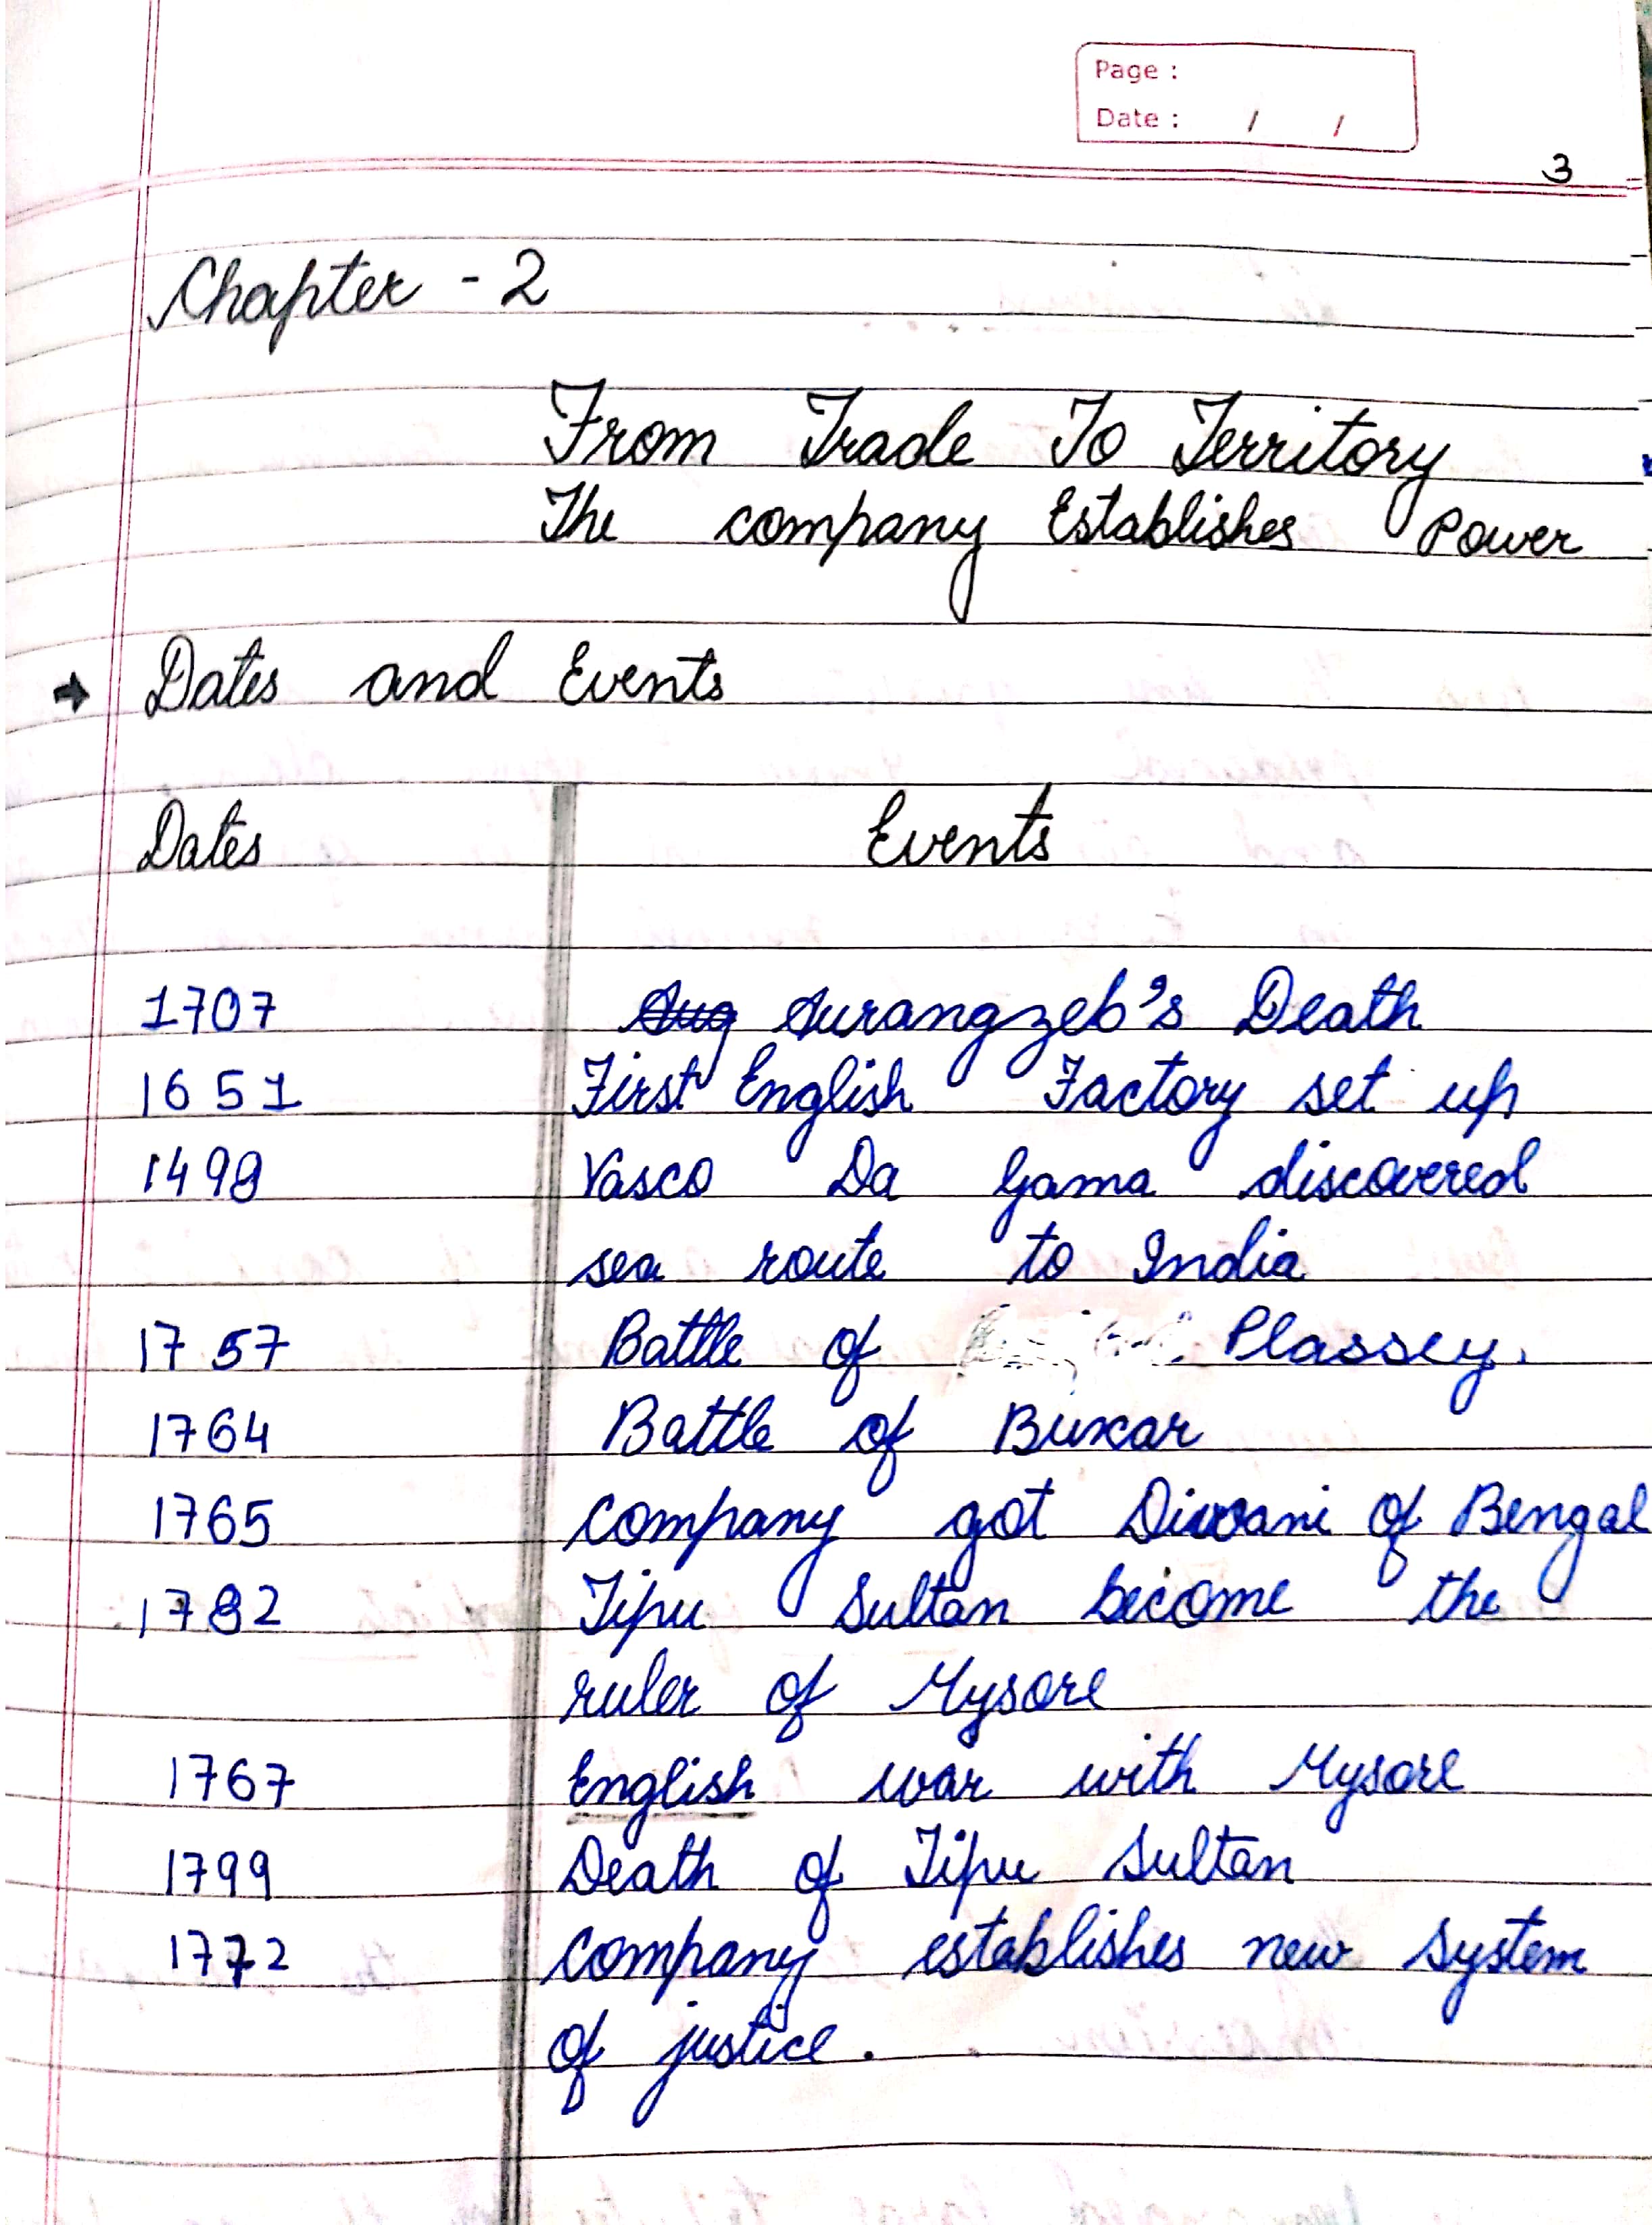 Page :
Date : / /
3
Chapter - 2
From Trade To Territory
The company Establishes Power
→ Dates and Events
Dates Events
1707 Aug Aurangzeb's Death
1651 First English Factory set up
1498 Vasco Da Gama discovered
sea route to India
1757 Battle of Plassey.
1764 Battle of Buxar
1765 company got Diwani of Bengal
1782 Tipu Sultan become the
ruler of Mysore
1767 English war with Mysore
1799 Death of Tipu Sultan
1772 company establishes new system
of justice.